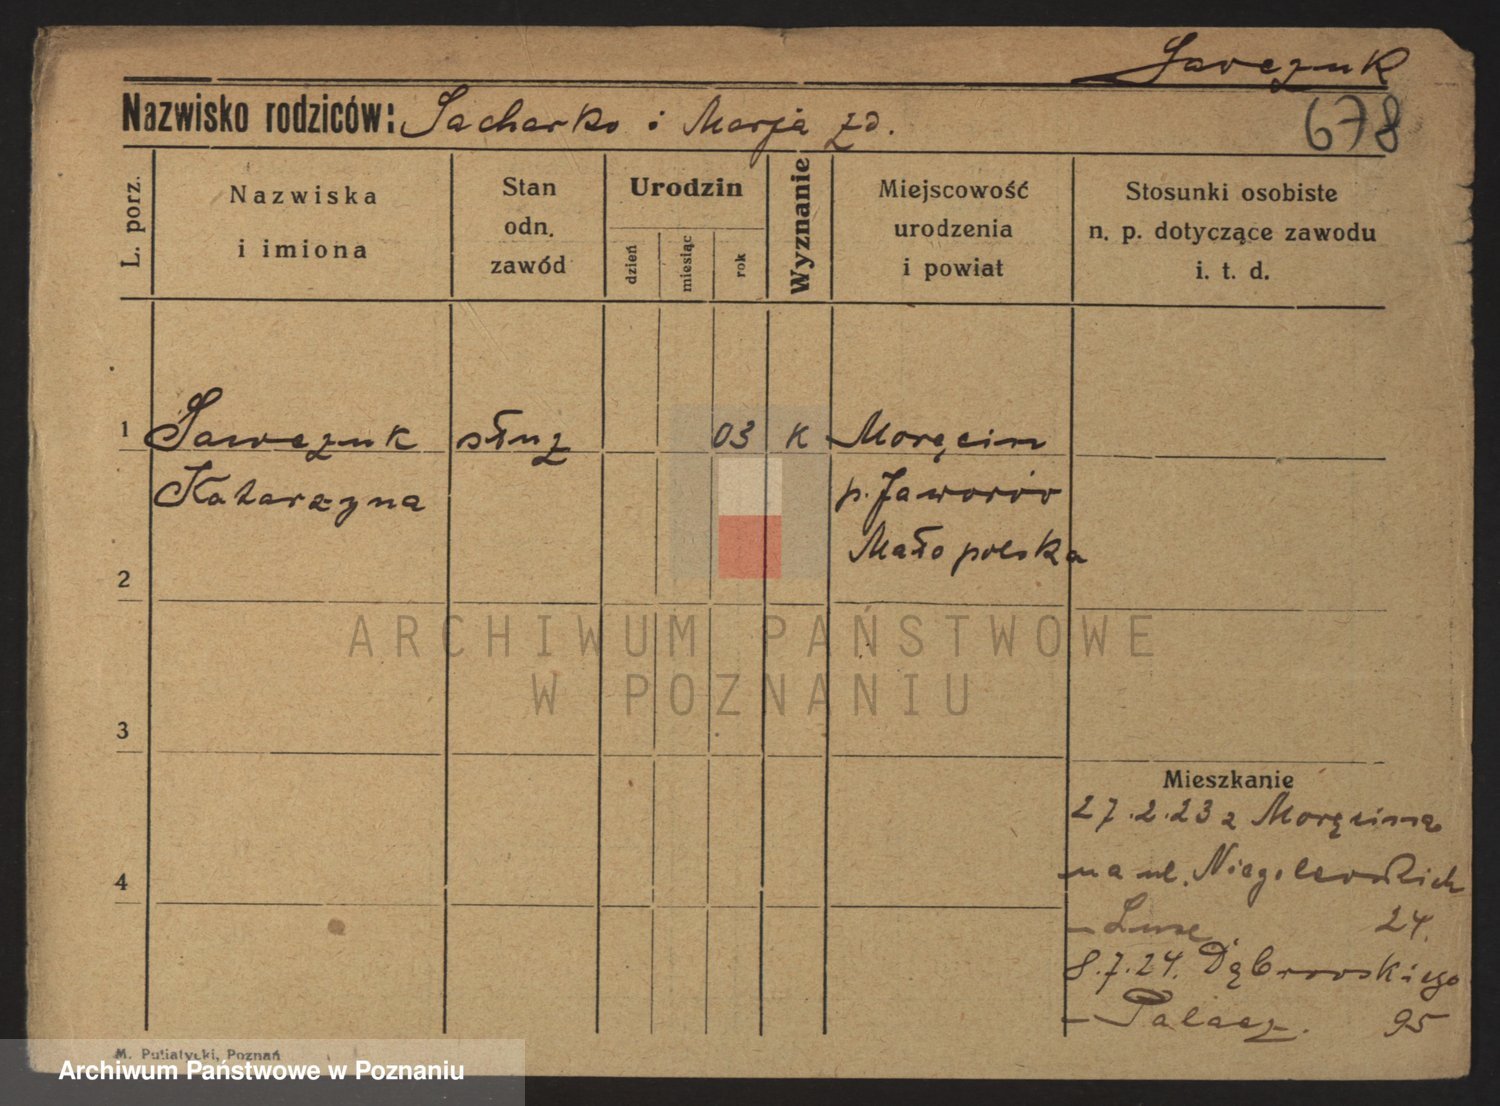 Sawczuk
678
Nazwisko rodziców: Sacharko i Marja zd.
L. porz.
Nazwiska
i imiona
Stan
odn.
zawód
Urodzin
dzień
miesiąc
rok
Wyznanie
Miejscowość
urodzenia
i powiat
Stosunki osobiste
n. p. dotyczące zawodu
i. t. d.
1 Sawczuk służ 03 K Moręcin
Katarzyna p. Jaworów
Małopolska
2
ARCHIWUM PAŃSTWOWE
W POZNANIU
3
Mieszkanie
27.2.23 z Moręcina
4
na ul. Niegolewskich
24.
8.7.24. Dąbrowskiego
– Palacz. 95
M. Putiatycki, Poznań
Archiwum Państwowe w Poznaniu